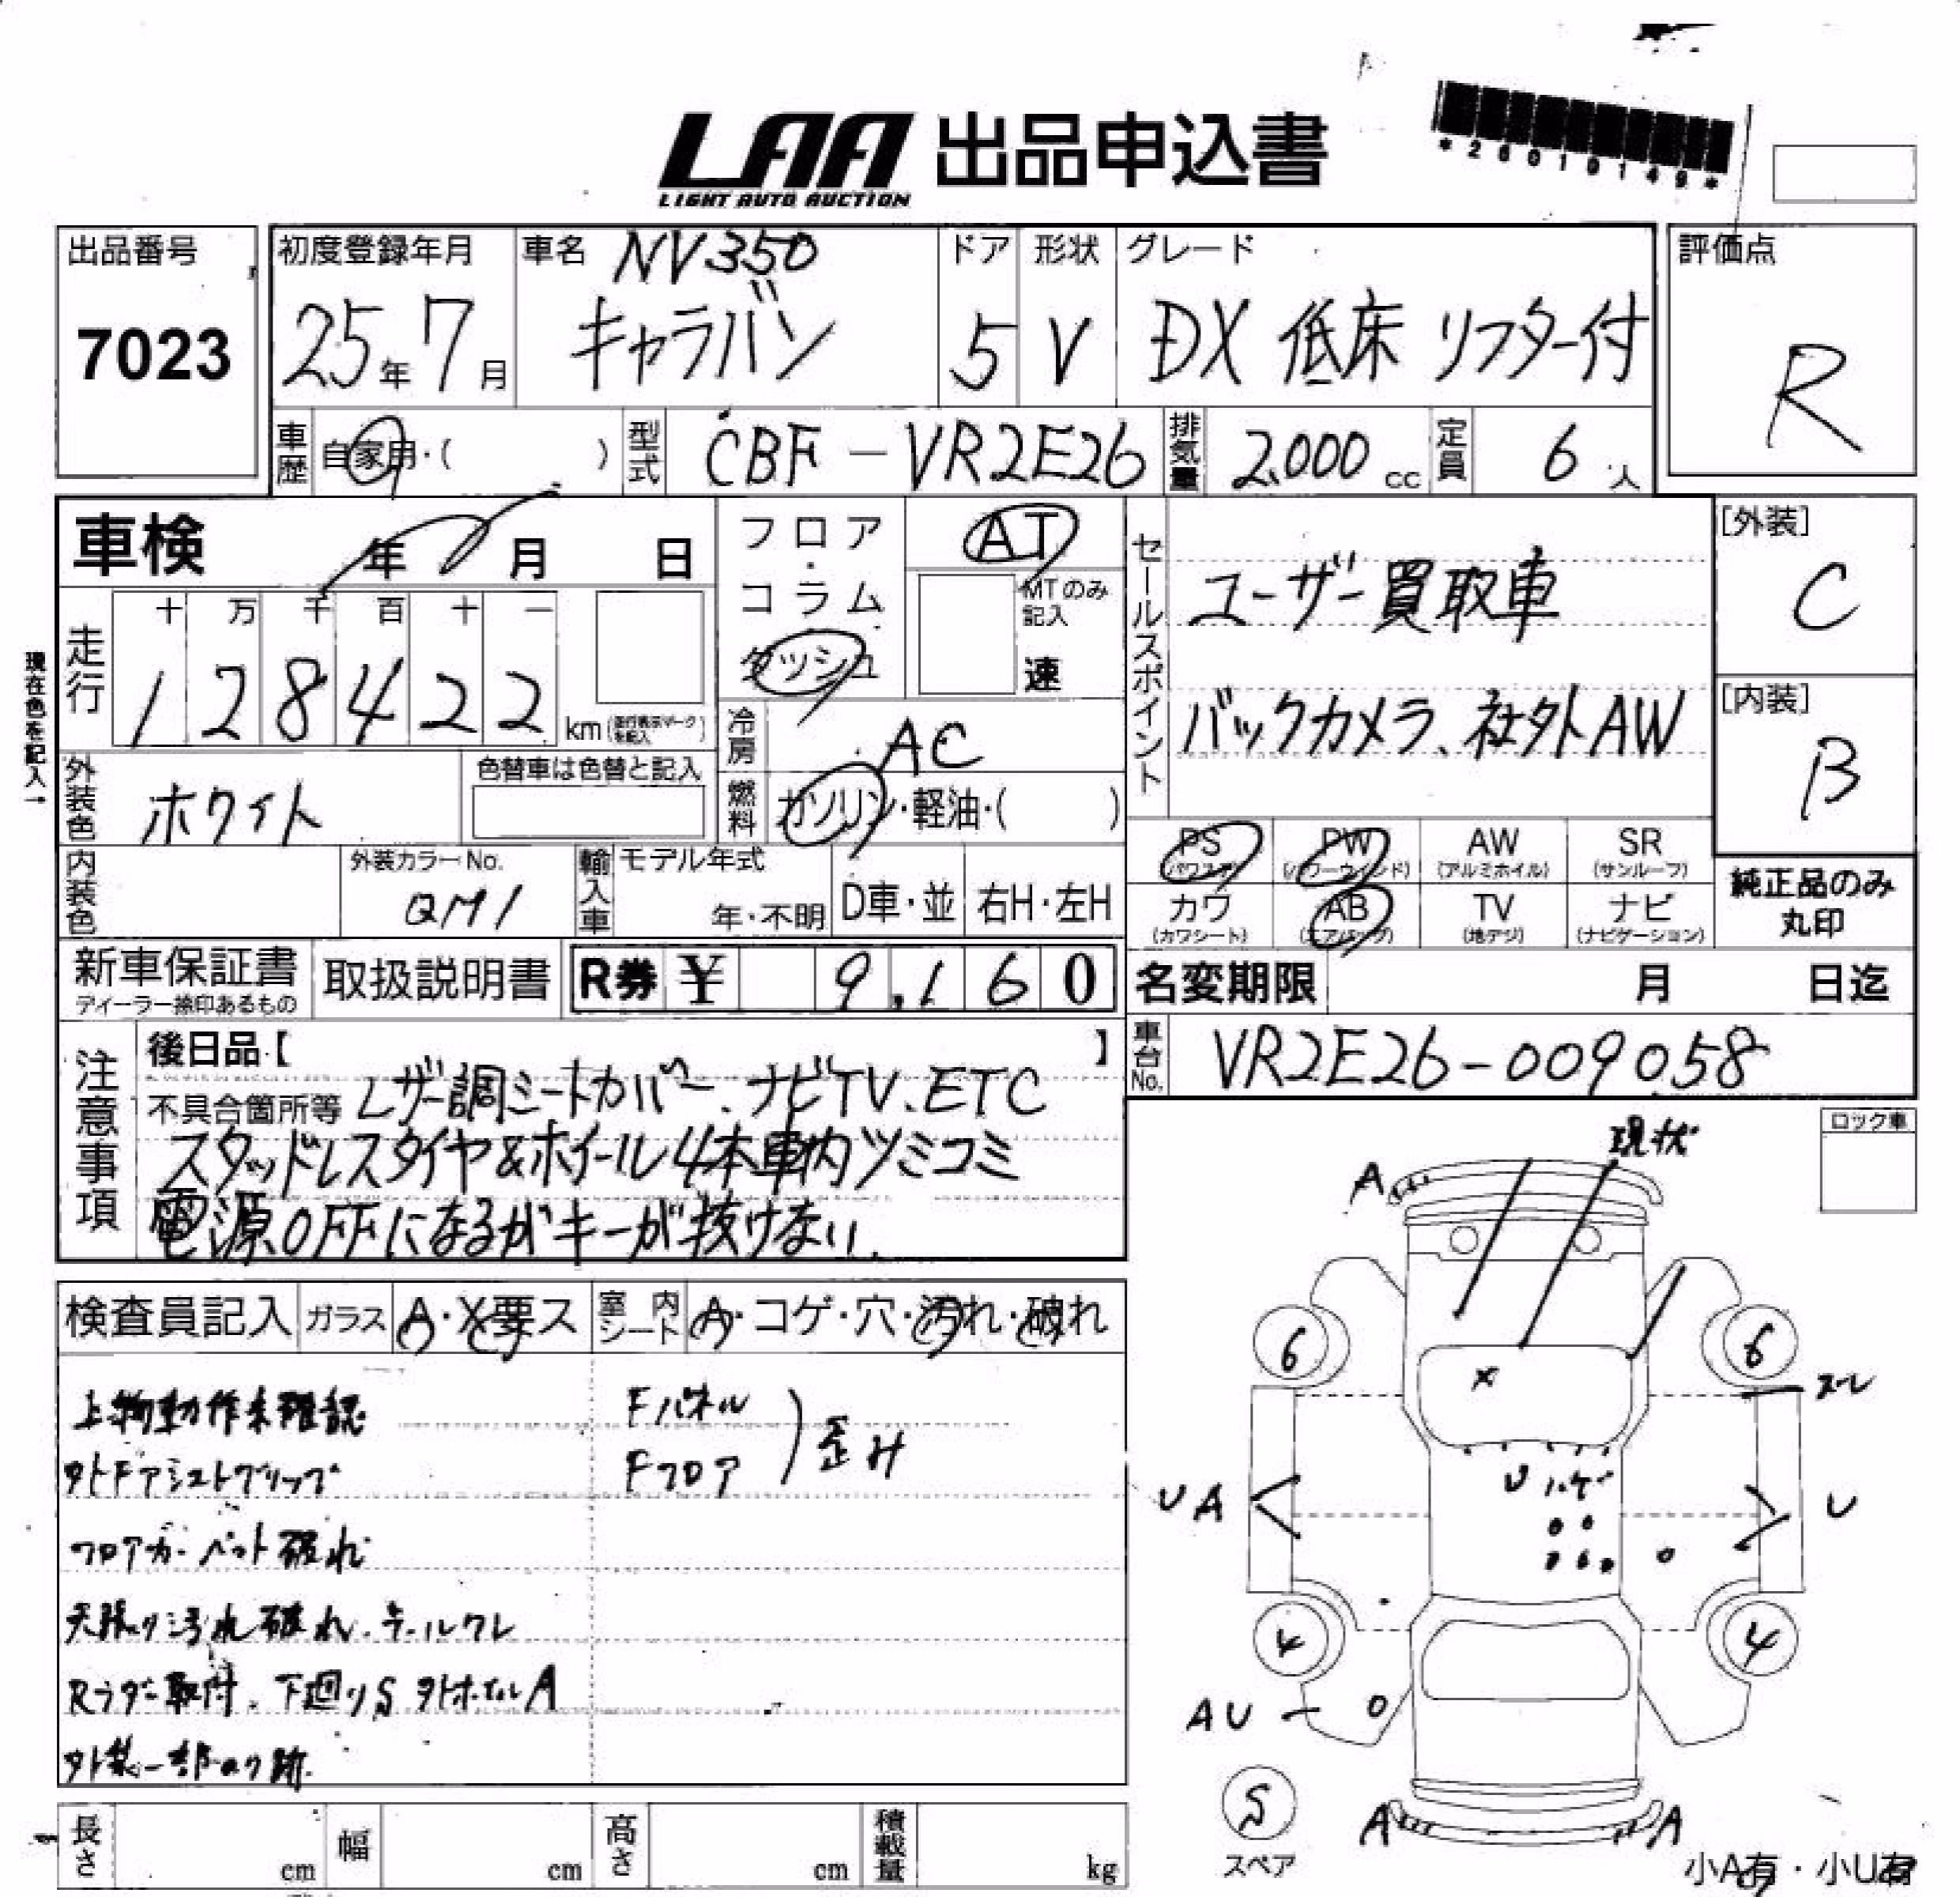 LAA 出品申込書
LIGHT AUTO AUCTION
*26010149*
出品番号
7023
初度登録年月
25年7月
車名 NV350
キャラバン
ドア
5
形状
V
グレード
DX 低床 リフター付
評価点
R
車歴 自家用・( )
型式 CBF-VR2E26
排気量 2,000 cc
定員 6 人
車検 年 月 日
現在色を記入→
走行
十 万 千 百 十 一
1 2 8 4 2 2 km
フロア・コラム・ダッシュ
AT
MTのみ記入
速
冷房 AC
燃料 ガソリン・軽油・( )
外装色 ホワイト
色替車は色替と記入
内装色
外装カラーNo.
QM1
輸入車 モデル年式
年・不明
D車・並 右H・左H
セールスポイント
ユーザー買取車
バックカメラ、社外AW
[外装]
C
[内装]
B
PS PW AW SR
(パワステ) (パワーウィンド) (アルミホイル) (サンルーフ)
カワ AB TV ナビ
(カワシート) (エアバッグ) (地デジ) (ナビゲーション)
純正品のみ
丸印
新車保証書
ディーラー捺印あるもの
取扱説明書
R券 ¥ 9,160
名変期限 月 日迄
車台No. VR2E26-009058
注意事項
後日品【 】
不具合箇所等 レザー調シートカバー、ナビTV、ETC
スタッドレスタイヤ&ホイール4本車内ツミコミ
電源OFFになるがキーが抜けない
ロック車
現状
検査員記入 ガラス A・X要ス 室内シート A・コゲ・穴・汚れ・破れ
上物動作未確認
Fパネル
Fフロア
歪み
フロアカーペット破れ
天張り汚れ破れ、テールワレ
Rラダー取付、下廻りS
A
A
6
6
スレ
X
U ハゲ
UA
U
4
4
AU
S
スペア
A
A
長さ cm 幅 cm 高さ cm 積載量 kg
小A有・小U有